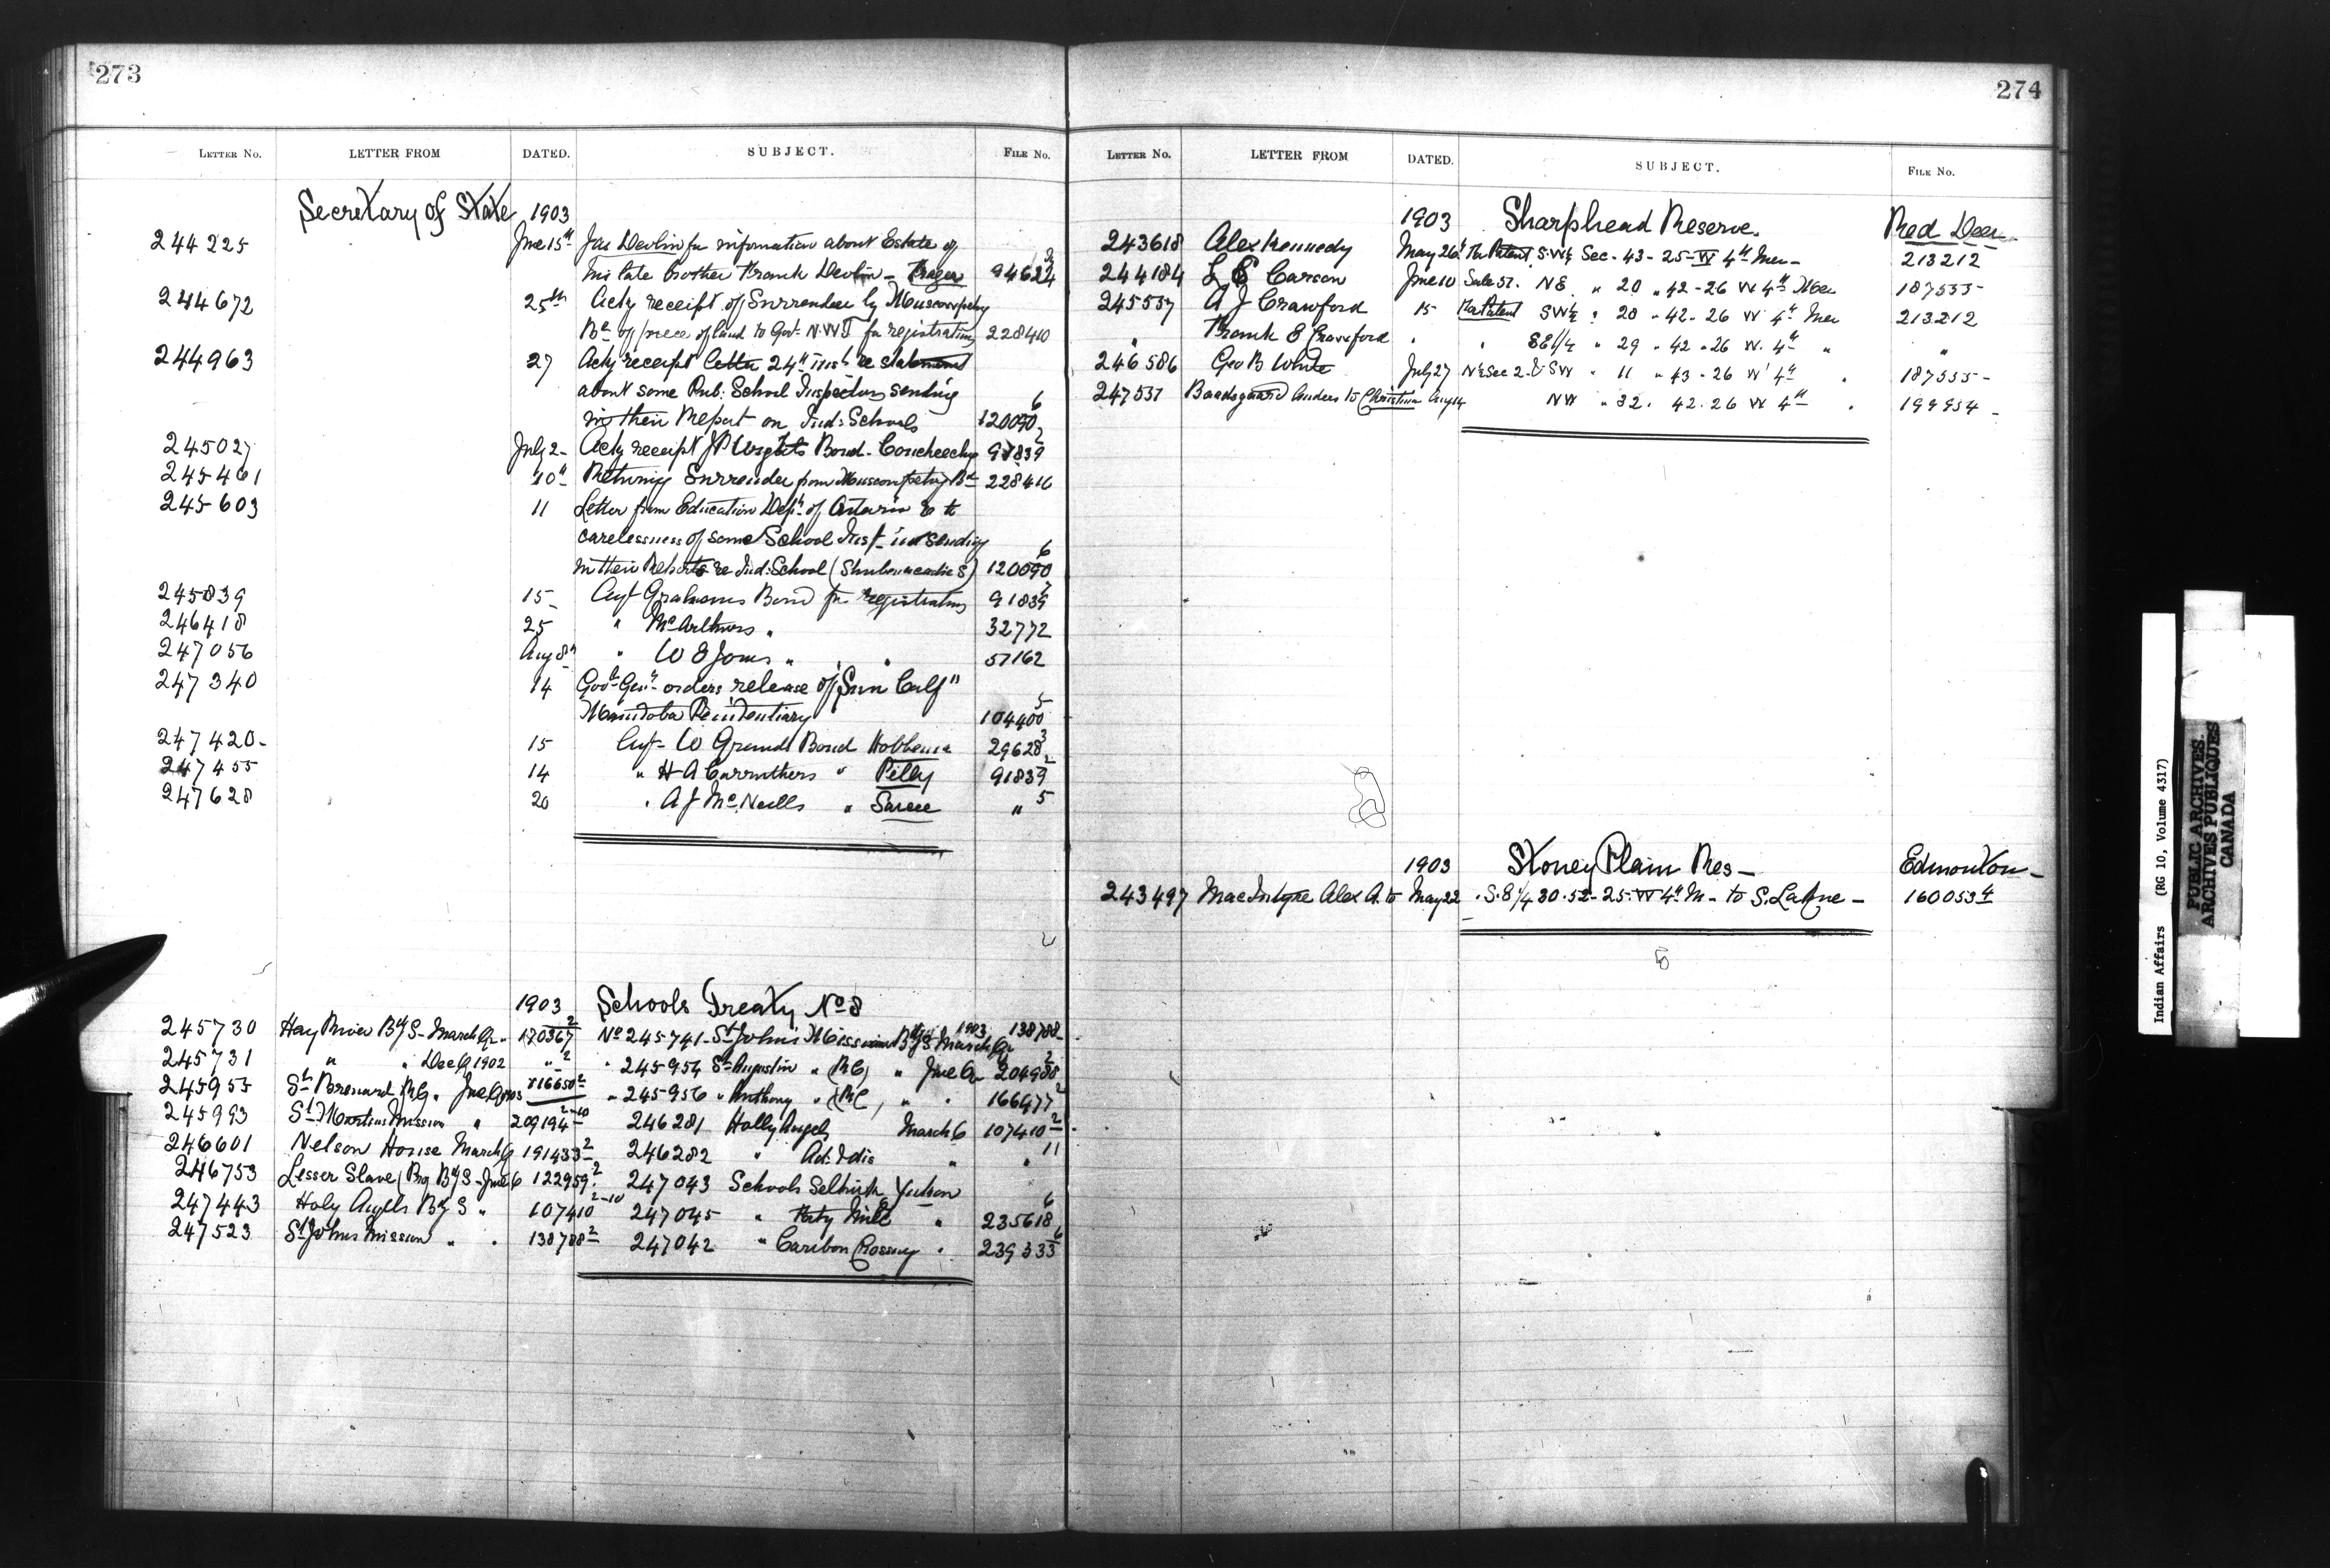 273
LETTER NO. LETTER FROM DATED. SUBJECT. FILE NO.
Secretary of State 1903
244225 June 15th Jas Devlin for information about Estate of
his late brother Frank Devlin - 94622
244672 25th Ackg receipt of Surrender by Muscowpetung
Bd of piece of land to Govt N.W.T for registration 228410
244963 27 Ackg receipt letter 24th inst re statement
about some Pub: School Inspectors sending
in their Report on Ind: Schools 120090 6
245027 July 2 Ackg receipt Wrights Bond - 91839 2
245461 10th Returning Surrender from Muscowpetung Bd 228416
245603 11 Letter from Education Dept of Ontario as to
carelessness of some School Inst in sending
in their Reports re Ind: School (Shubenacadie S) 120090 6
245839 15 Grahams Bond for registration 91839
246418 25 " McArthurs " 32772
247056 Aug 8th " W E Jones " " 57162
247340 14 Govr Genl orders release of "Sun Calf"
Manitoba Penitentiary 104400 5
247420 15 W Grunds Bond Hobbema 29628 3
247455 14 " H A Carruthers " Pelly 91839 2
247628 20 " A J McNeills " Sarcee " 5
1903 Schools Treaty No 8
245730 Hay River Bdg S - March Qr 170367 2 No 245741 - St Johns Mission Bdg S March Qr 1903 138788
245731 " " Dec Q 1902 " 2 " 245954 St Augustin " (RC) " June Qr 204988 2
245955 St Bernard RC " June Q 1903 216650 2 " 245956 " Anthony " (RC) " " 166477 2
245993 St Martins Mission " 209194 2-10 246281 Holly Angels March 6 107410 2
246601 Nelson House March Q 191433 2 246282 " Ad: Idis " " 11
246753 Lesser Slave (Prg Bdg S - June 6 122959 2 247043 Schools Selkirk Yukon
247443 Holy Angels Bdg S " 107410 2-10 247045 " Forty Mile " 235618 6
247523 St Johns Mission " " 138788 2 247042 " Caribou Crossing " 239333 6
274
LETTER NO. LETTER FROM DATED. SUBJECT. FILE NO.
1903 Sharphead Reserve. Red Deer
243618 Alex Kennedy May 26th For Patent S.W¼ Sec - 43 - 25 - W 4th Mer - 213212
244184 L E Carson June 10 Sale 57. NE " 20 " 42 - 26 W 4th Mer 187555 -
245537 A J Crawford 15 For Patent SW¼ " 20 " 42 - 26 W 4th Mer 213212
" Frank E Crawford " " SE 1/4 " 29 " 42 - 26 W. 4th " "
246586 Geo B White July 27 N½ Sec 2 - & SW " 11 " 43 - 26 W 4th " 187555 -
247537 Baadsgaard Anders to Christian Aug 14 NW " 32. 42. 26 W 4th " 199954 -
1903 Stoney Plain Res - Edmonton -
243497 MacIntyre Alex A. to May 22 S.E 1/4 30 - 52 - 25 - W 4th M - to S. - 160053 4
Indian Affairs (RG 10, Volume 4317)
PUBLIC ARCHIVES
ARCHIVES PUBLIQUES
CANADA